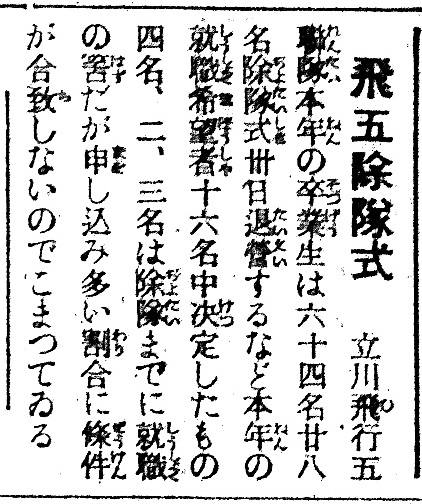 飛五除隊式
立川飛行五
聯隊本年の卒業生は六十四名廿八
名除隊式卅日退營するなど本年の
就職希望者十六名中決定したもの
四名、二、三名は除隊までに就職
の筈だが申し込み多い割合に條件
が合致しないのでこまつてゐる